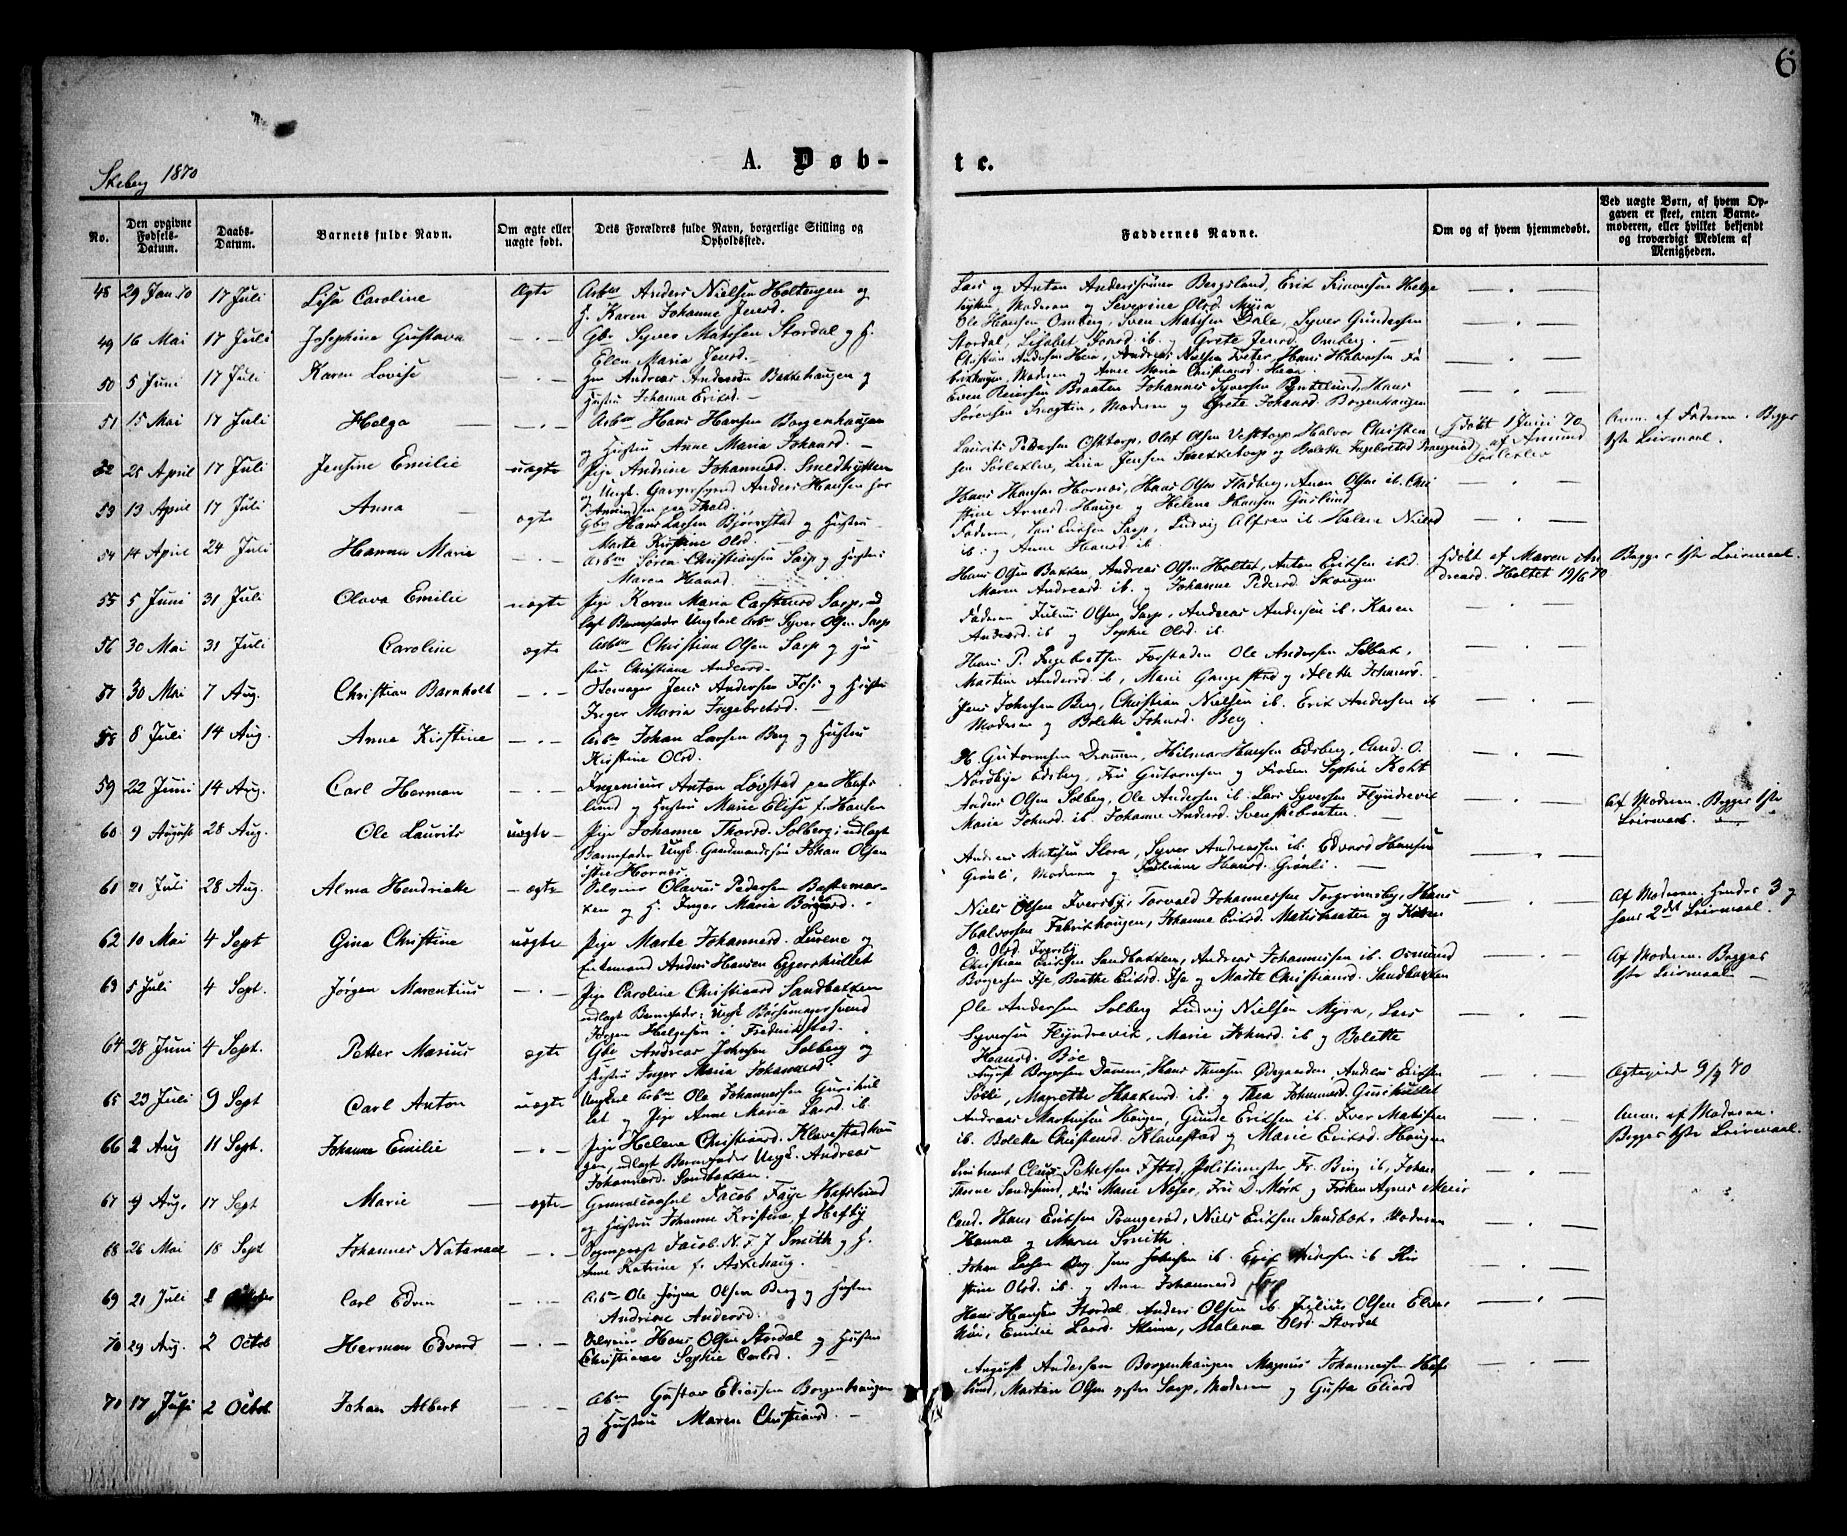 6
Skeberg 1870
A. Døb-
te.
No.
Den opgivne Fødsels-Datum.
Daabs-Datum.
Barnets fulde Navn.
Om ægte eller uægte født.
Dets Forældres fulde Navn, borgerlige Stilling og Opholdssted.
Faddernes Navne.
Om og af hvem hjemmedøbt.
Ved uægte Børn, af hvem Opgaven er skeet, enten Barnemoderen, eller hvilket bekjendt og troværdigt Medlem af Menigheden.
48 29 Jan 70 17 Juli Lisa Caroline Ægte Arbm Anders Nielsen Holtengen og
H. Karen Johanne Jensd.
Lars og Anton Anderssønner Bergsland, Erik Simonsen Helge
Moderen og Severine Olsd. Myra
49 16 Mai 17 Juli Josephine Gustava — . — Gbr Syver Matisen Stordal og H.
Elen Maria Jensd.
Ole Hansen Omberg, Sven Matisen Dale, Syver Gundersen
Stordal, Lisabet Jensd. ib. og Grete Jensd. Omberg.
50 5 Juni 17 Juli Karen Lovise — . — Andreas Andersen Bakkehaugen og
Hustru Johanne Eriksd.
Christian Andersen Heen, Andreas Nielsen Hans Halvorsen Fa
brikhaugen, Moderen og Anne Maria Christiansd. Haan
51 15 Mai 17 Juli Helga — . — Arbm Hans Hansen Borgenhaugen
og Hustru Anne Maria Johansd.
Even Reiersen Braaten Johannes Syversen Hans
Sørensen Moderen og Grete Johansd. Borgenhaugen
52 28 April 17 Juli Jensine Emilie uægte Pige Andrine Johannesd. Smedhytten
og Ungk. Garversvend Anders Hansen hos
Amundsen paa
Laurits Pedersen Osttorp, Olaf Olsen Vesttorp Halvor Christen
sen Sørlexlev, Lina Jensen og Bolette Ingebretsd
Hjdøbt 1 Juni 70
af Amund
Anm. af Faderen. Begges
1ste Leiermaal.
53 13 April 17 Juli Anna ægte Gbr Hans Larsen Bjørnstad og Hustru
Marte Kirstine Olsd.
Hans Hansen Hornes, Hans Olsen Anon Olsen ib. Chri
stine Arnesd. Hauge og Helene Hansen
54 14 April 24 Juli Hanna Marie — . — Arbm Søren Christiansen Sarp og Hustru
Maren Hansd.
Faderen, Lars Sarp, Ludvig Alfsen ib Helene Nielsd
ib. og Anne Hansd. ib.
55 5 Juni 31 Juli Olava Emilie uægte Pige Karen Maria Carstensd Sarp, ud
lagt Barnefader Ungkarl Arbm Syver Olsen Sarp
Hans Olsen Bakken, Andreas Olsen Holtet, Anton Eriksen ibd.
Maren Andreasd ib. og Johanne Pedersd. Skougen
Hjdøbt af Maren An
dreasd. Holtet 19/6 70
Begges 1ste Leiermaal.
56 30 Mai 31 Juli Caroline ægte Arbm Christian Olsen Sarp og Hu
stru Christiane Andersd.
Faderen Julius Olsen Sarp, Andreas Andersen ib. Karen
Andersd. ib og Sophie Olsd. ib.
57 30 Mai 7 Aug. Christian Barnholt — . — Skomager Jens Andersen Fosi og Hustru
Inger Maria Ingebretsd.
Hans P. Ingebretsen Forstaden Ole Andersen Solbak,
Martine Andersd. ib, Marie og Alette Johansd.
58 8 Juli 14 Aug. Anna Kirstine — . — Arbm Johan Larsen Berg og Hustru
Kirstine Olsd.
Jens Johnsen Berg, Christian Nielsen ib. Erik Andersen ib
Moderen og Bolette Johnsd. Berg.
59 22 Juni 14 Aug. Carl Herman — . — Ingenieur Anton Løgstad paa Hafs
lund og Hustru Marie Elise f. Hansen
H. Gutormsen Drammen, Hilmar Hansen Edsberg, Cand. O.
Nordbye Edsberg, Fru Gutormsen og Frøken Sophie Koht
60 9 August 28 Aug. Ole Laurits uægte Pige Johanne Thorsd. Solberg: udlagt
Barnefader Ungk. Gaardmandssøn Johan Olsen
Hornes.
Anders Olsen Solberg, Ole Andersen ib. Lars Syversen Flyndrevik
Maria Johnsd ib. Johanne Andersd. Svenskebraaten.
Af Moderen. Begges 1ste
Leiermaal.
61 21 Juli 28 Aug. Alma Hendrikke ægte Olavus Pedersen Bastemar-
ken og H. Inger Maria Børgesd.
Anders Matisen Slora, Syver Andreassen ib. Edvard Hansen
Grønli, Moderen og Juliane Hansd. Grønli.
62 10 Mai 4 Sept Gina Christine uægte Pige Marte Johannesd. Lurene og
Enkemand Anders Hansen Eggerskillet
Niels Olsen Iversby, Torvald Johannessen Torgrimsby, Hans
Halvorsen Fabrikhaugen, Johanne Eriksd. Matisbraaten og Karen
O. Olsd. Iversby
Af Moderen. Hendes 3 og
hans 2det Leiermaal.
63 5 Juli 4 Sept. Jørgen Marentius — . — Pige Caroline Christiansd Sandbakken
udlagt Barnefader: Ungk Børsemagersvend
Jørgen Helgesen i Frederikstad.
Christian Eriksen Sandbakken, Andreas Johannessen ib. Osmund
Borgersen Ise Berthe Eriksd. Ise og Marte Christiansd. Sandbakken
Af Moderen. Begges
1ste Leiermaal —
64 28 Juni 4 Sept. Petter Marius ægte Gbr Andreas Johnsen Solberg og
Hustru Inger Maria Johannesd.
Ole Andersen Solberg Ludvig Nielsen Myra, Lars
Syversen Flyndrevik, Marie Johnsd. ib og Bolette
Hansd. Bøe
65 23 Juli 9 Sept Carl Anton uægte Ungkarl Arbm Ole Johannessen Gurihul
let og Pige Anne Maria Larsd. ib.
August Borgersen Hans Thuesen Anders Eriksen
Solli, Magrethe Haakensd. ib. og Thea Johannesd. Gurihullet
Ægteviede 9/9 70
66 2 Aug 11 Sept. Johanne Emilie — . — Pige Helene Christiansd. Klavestadhau
gen, udlagt Barnefader Ungk. Andreas
Johannesd. Sandbakken.
Andreas Martinsen Haugen, Gunde Eriksen ib. Iver Matisen
ib. Bolette Christensd. Klavestad og Marie Eriksd. Haugen
Anm. af Moderen.
Begges 1ste Leiermaal.
67 9 Aug. 17 Sept Marie ægte Generalconsul Jacob Faye Hafslund
og Hustru Johanne Kristine f. Hefty
Lieutnant Claus Pettersen Fstad, Politimester Fr. Bing ib, Johan
Thorne Sandesund, Fru Marie Fru D. Mørk og Frøken Agnes Meier
68 26 Mai 18 Sept Johannes Natanael — . — Sognepræst Jacob. N. F. J Smith og H.
Anne Katrine f. Askehaug.
Cand. Hans Eriksen Prangerød, Niels Eriksen Sandbæk, Moderen
Hanna og Maren Smith.
69 21 Juli 2 October Carl Edvin — . — Arbm Ole Jørgen Olsen Berg og Hustru
Andrine Andersd.
Johan Larsen Berg, Jens Johnsen ib. Erik Andersen ib. Kir
stine Olsd. ib. og Ane Johannesd
70 29 Aug. 2 Octob Herman Edvard — . — Hans Olsen Stordal og Hustru
Christiane Sophie Carlsd.
Hans Hansen Stordal, Anders Olsen ib. Julius Olsen
Emilie Larsd. Malene Olsd. Stordal
70 17 Juli 2 Octob. Johan Albert — . — Arbm Gustav Eliassen Borgenhaugen
og Hustru Maren Christiansd. —
August Andersen Borgenhaugen Magnus Johannesen Hafs
lund, Martin Olsen Sarp, Moderen og Gusta Eliasd